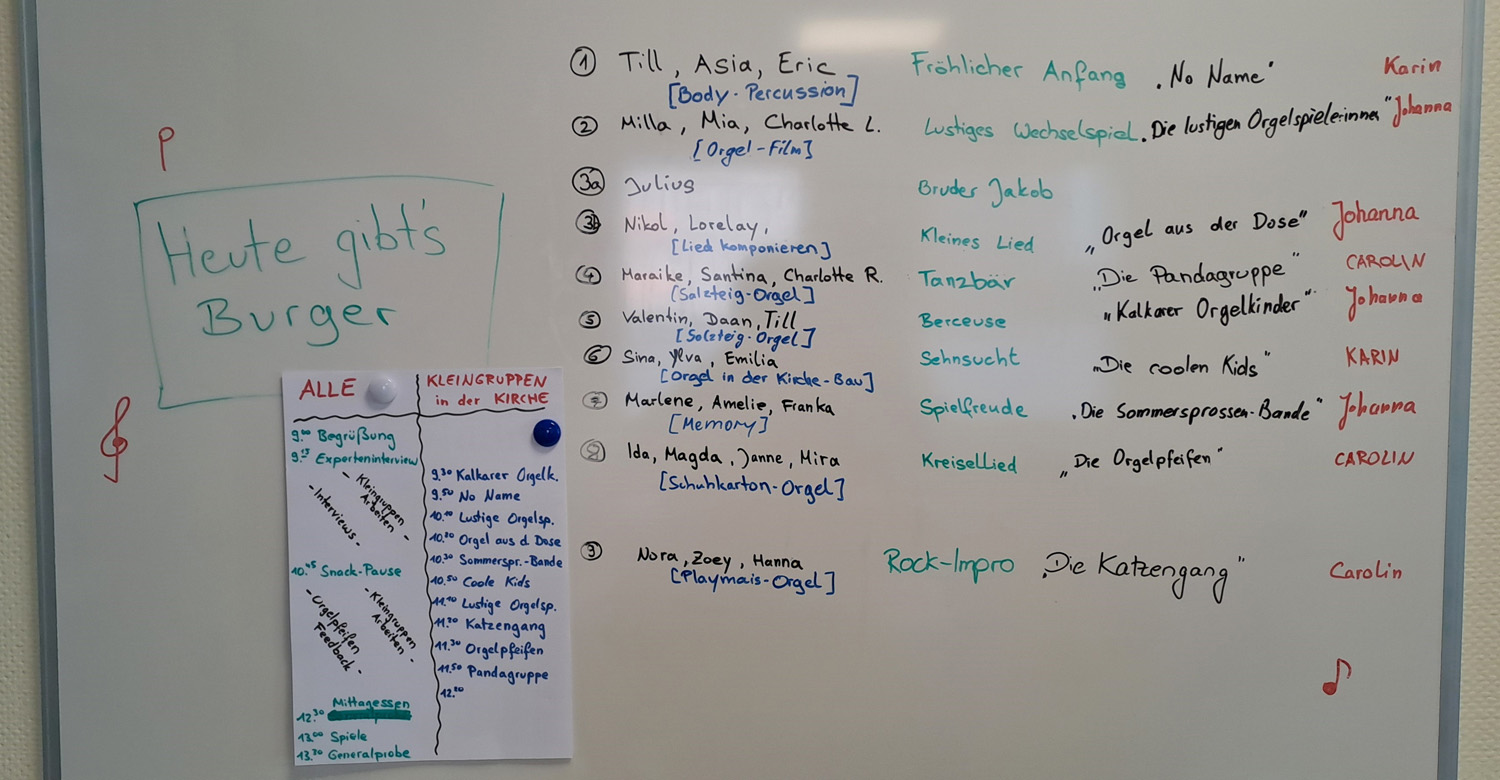 Heute gibt's
Burger
① Till, Asia, Eric Fröhlicher Anfang „No Name" Karin
[Body-Percussion]
② Milla, Mia, Charlotte L. Lustiges Wechselspiel „Die lustigen Orgelspieler:innen" Johanna
[Orgel-Film]
3a Julius Bruder Jakob
3b Nikol, Lorelay, Kleines Lied „Orgel aus der Dose" Johanna
[Lied komponieren]
④ Maraike, Santina, Charlotte R. Tanzbär „Die Pandagruppe" CAROLIN
[Salzteig-Orgel]
⑤ Valentin, Daan, Till Berceuse „Kalkarer Orgelkinder" Johanna
[Salzteig-Orgel]
⑥ Sina, Ylva, Emilia Sehnsucht „Die coolen Kids" KARIN
[Orgel in der Kirche-Bau]
⑦ Marlene, Amelie, Franka Spielfreude „Die Sommersprossen-Bande" Johanna
[Memory]
⑧ Ida, Magda, Janne, Mira Kreisellied „Die Orgelpfeifen" CAROLIN
[Schuhkarton-Orgel]
⑨ Nora, Zoey, Hanna Rock-Impro „Die Katzengang" Carolin
[Playmais-Orgel]
ALLE
9.00 Begrüßung
9.15 Experteninterview
- Kleingruppen
Arbeiten -
- Interviews -
10.45 Snack-Pause
- Kleingruppen
Arbeiten -
- Orgelpfeifen
Feedback -
12.30 Mittagessen
13.00 Spiele
13.30 Generalprobe
KLEINGRUPPEN
in der KIRCHE
9.30 Kalkarer Orgelk.
9.50 No Name
10.10 Lustige Orgelsp.
10.20 Orgel aus d Dose
10.30 Sommerspr.-Bande
10.50 Coole Kids
11.10 Lustige Orgelsp.
11.20 Katzengang
11.30 Orgelpfeifen
11.50 Pandagruppe
12.20